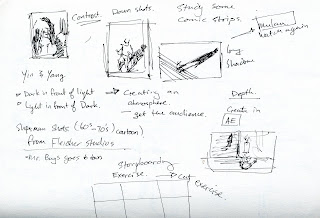 Contrast.
Down shots.
Study some
Comic strips.
Mulan
watch again
long
Shadows
Yin & Yang.
• Dark in front of light
• Light in front of Dark.
→ Creating an
atmosphere.
- get the audience.
Depth.
Create in
AE
Superman shots (60's-70's) cartoon)
from Fleisher studios
• Mr. Bugs goes to town
Storyboarding
Exercise. → Cut Exercise.